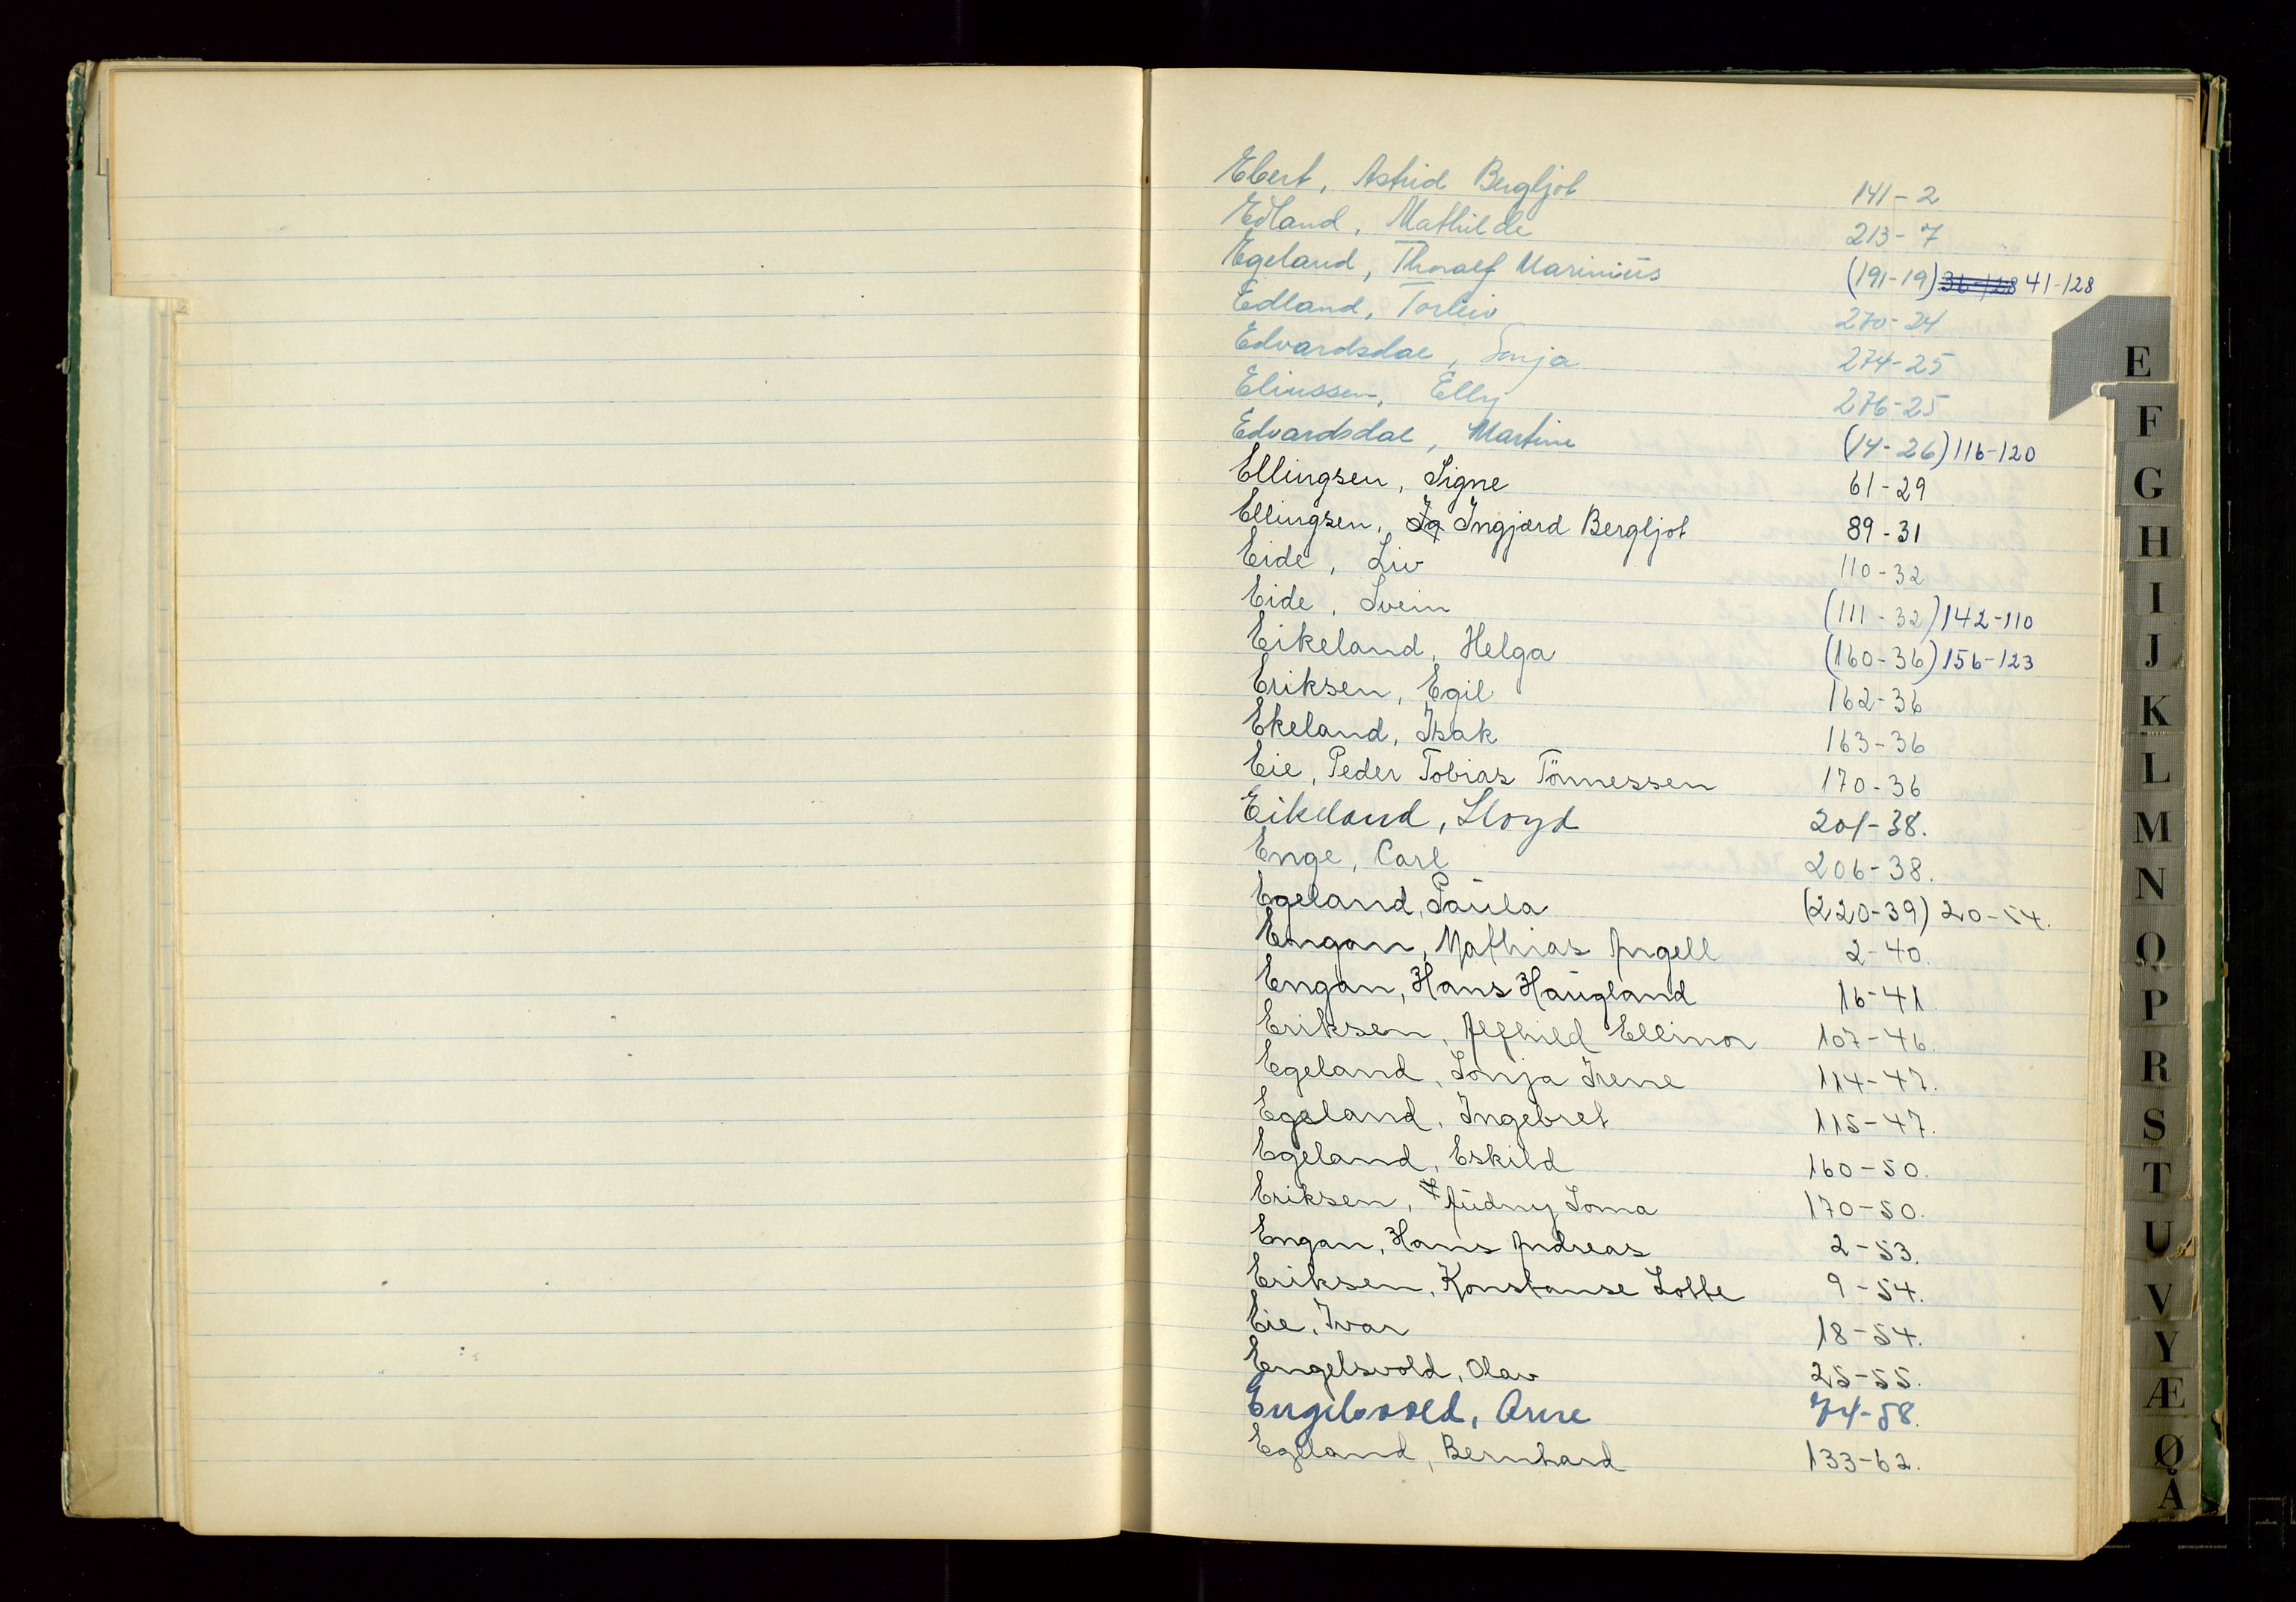 Ebert, Astrid Bergljot 141-2
Edland, Mathilde 213-7
Egeland, Thoralf Marinius (191-19) 36-128 41-128
Edland, Torleiv 270-24
Edvardsdal, Sonja 274-25
Eliussen, Elly 276-25
Edvardsdal, Martine (14-26) 116-120
Ellingsen, Signe 61-29
Ellingsen, Ig Ingjærd Bergljot 89-31
Eide, Liv 110-32
Eide, Svein (111-32) 142-110
Eikeland, Helga (160-36) 156-123
Eriksen, Egil 162-36
Ekeland, Isak 163-36
Eie, Peder Tobias Tönnessen 170-36
Eikeland, Lloyd 201-38.
Enge, Carl 206-38.
Egeland, Paula (220-39) 20-54.
Engan, Mathias Angell 2-40.
Engan, Hans Haugland 16-41
Eriksen, Alfhild Ellinor 107-46.
Egeland, Sonja Irene 114-47.
Egeland, Ingebret 115-47.
Egeland, Eskild 160-50.
Eriksen, Audny Soma 170-50.
Engan, Hans Andreas 2-53.
Eriksen, Konstanse Lotte 9-54.
Eie, Ivar 18-54.
Engelsvold, Olav 25-55.
Engelsvold, Arne 74-58.
Egeland, Bernhard 133-62.
E
F
G
H
I
J
K
L
M
N
O
P
R
S
T
U
V
Y
Æ
Ø
Å